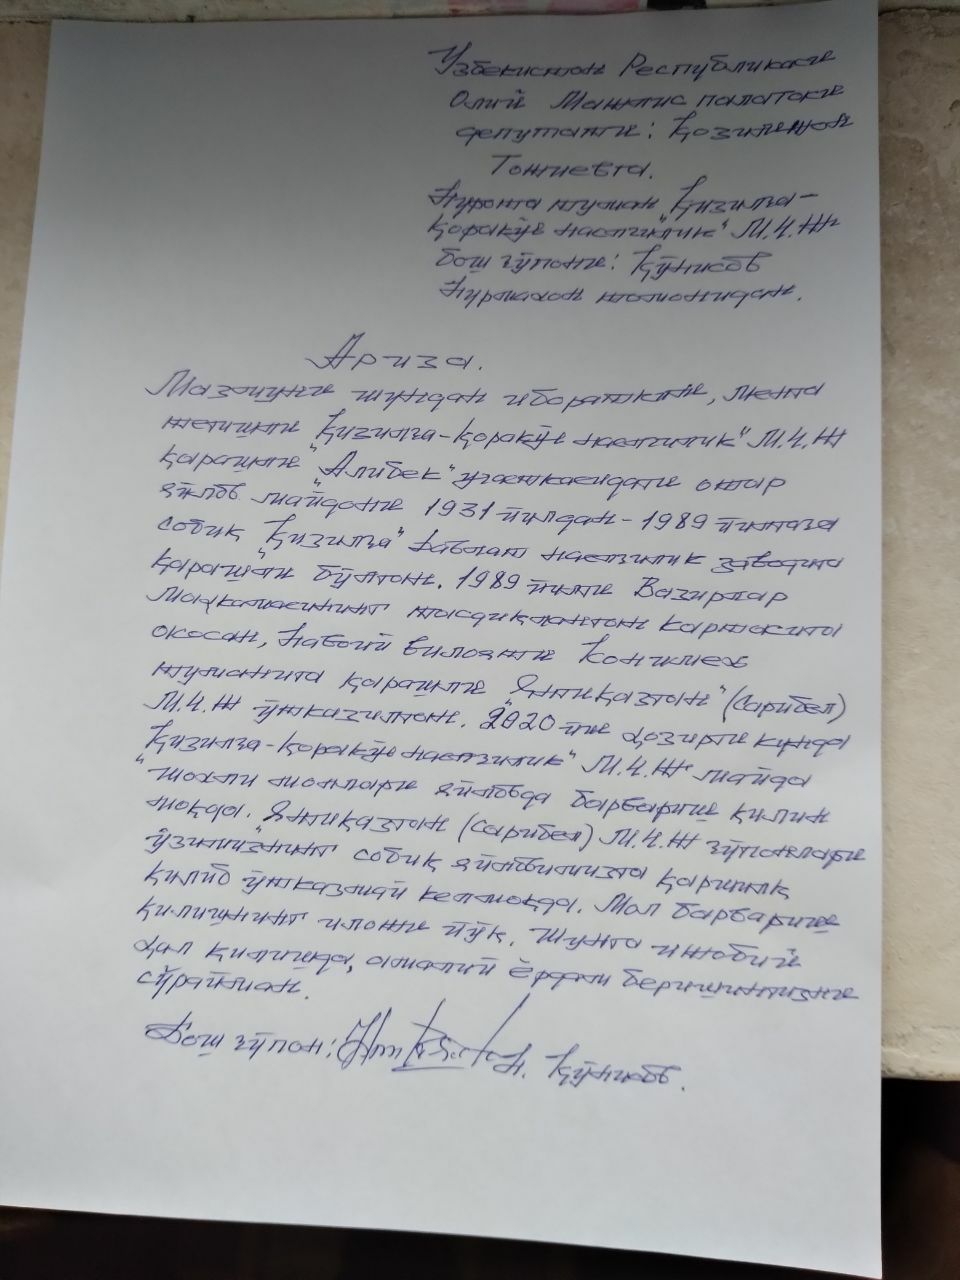 Ўзбекистон Республикаси
Олий Мажлис палатаси
депутати: Қозиленой
Тожиевга.
Нурота туман "Қизилча-
қоракўл насилчилик" М.Ч.Ж
бош чўпони: Қўнисов
Нурмахон томонидан.
Ариза.
Мазмуни шундан иборатки, менга
тегишли "Қизилча-қоракўл насилчилик" М.Ч.Ж
қарашли "Алибек" участкасидаги онтар
яйлов майдони 1931 йилдан - 1989 йилгача
собиқ "Қизилча" давлат наслчилик заводига
қарашли бўлган. 1989 йили Вазирлар
Маҳкамасининг тасдиқланган картасига
асосан, Навоий вилояти Конимех
туманига қарашли "Янгиқазган" (Сарибел)
М.Ч.Ж ўтказилган. 2020 йил ҳозирги кунда
"Қизилча-қоракўл наслчилик" М.Ч.Ж майда
шохли моллари яйловда барвариш қилин
моқда. "Янгиқазган (Сарибел) М.Ч.Ж чўпонлари
ўзимизнинг собиқ яйловимизга қаршилик
қилиб ўтказмай келмоқда. Мол барвариш
қилишнинг иложи йўқ. Шунга ижобий
ҳал қилишда, амалий ёрдам беришингизни
сўрайман.
Бош чўпон: Н. Қўнисов.